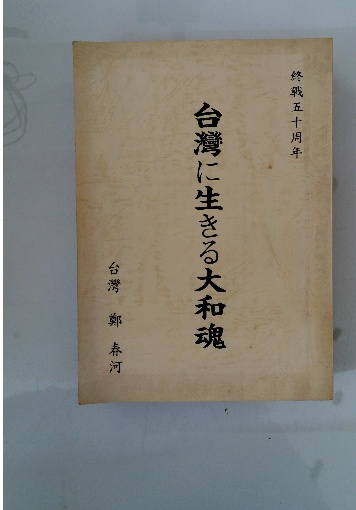 終戦五十周年
台灣に生きる大和魂
台灣 鄭春河